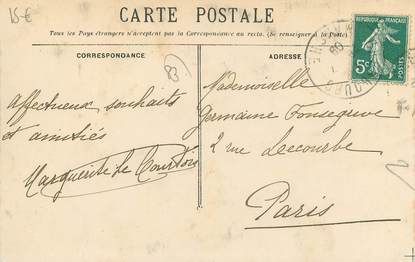 15-€
CARTE POSTALE
Tous les Pays étrangers n'acceptent pas la Correspondance au recto. (Se renseigner à la Poste)
CORRESPONDANCE
ADRESSE
RÉPUBLIQUE FRANÇAISE
5c
POSTES
83
Affectueux souhaits
et amitiés
Marguerite Le Courtois
Mademoiselle
Germaine Fonsegrive
2 rue Lecourbe
Paris